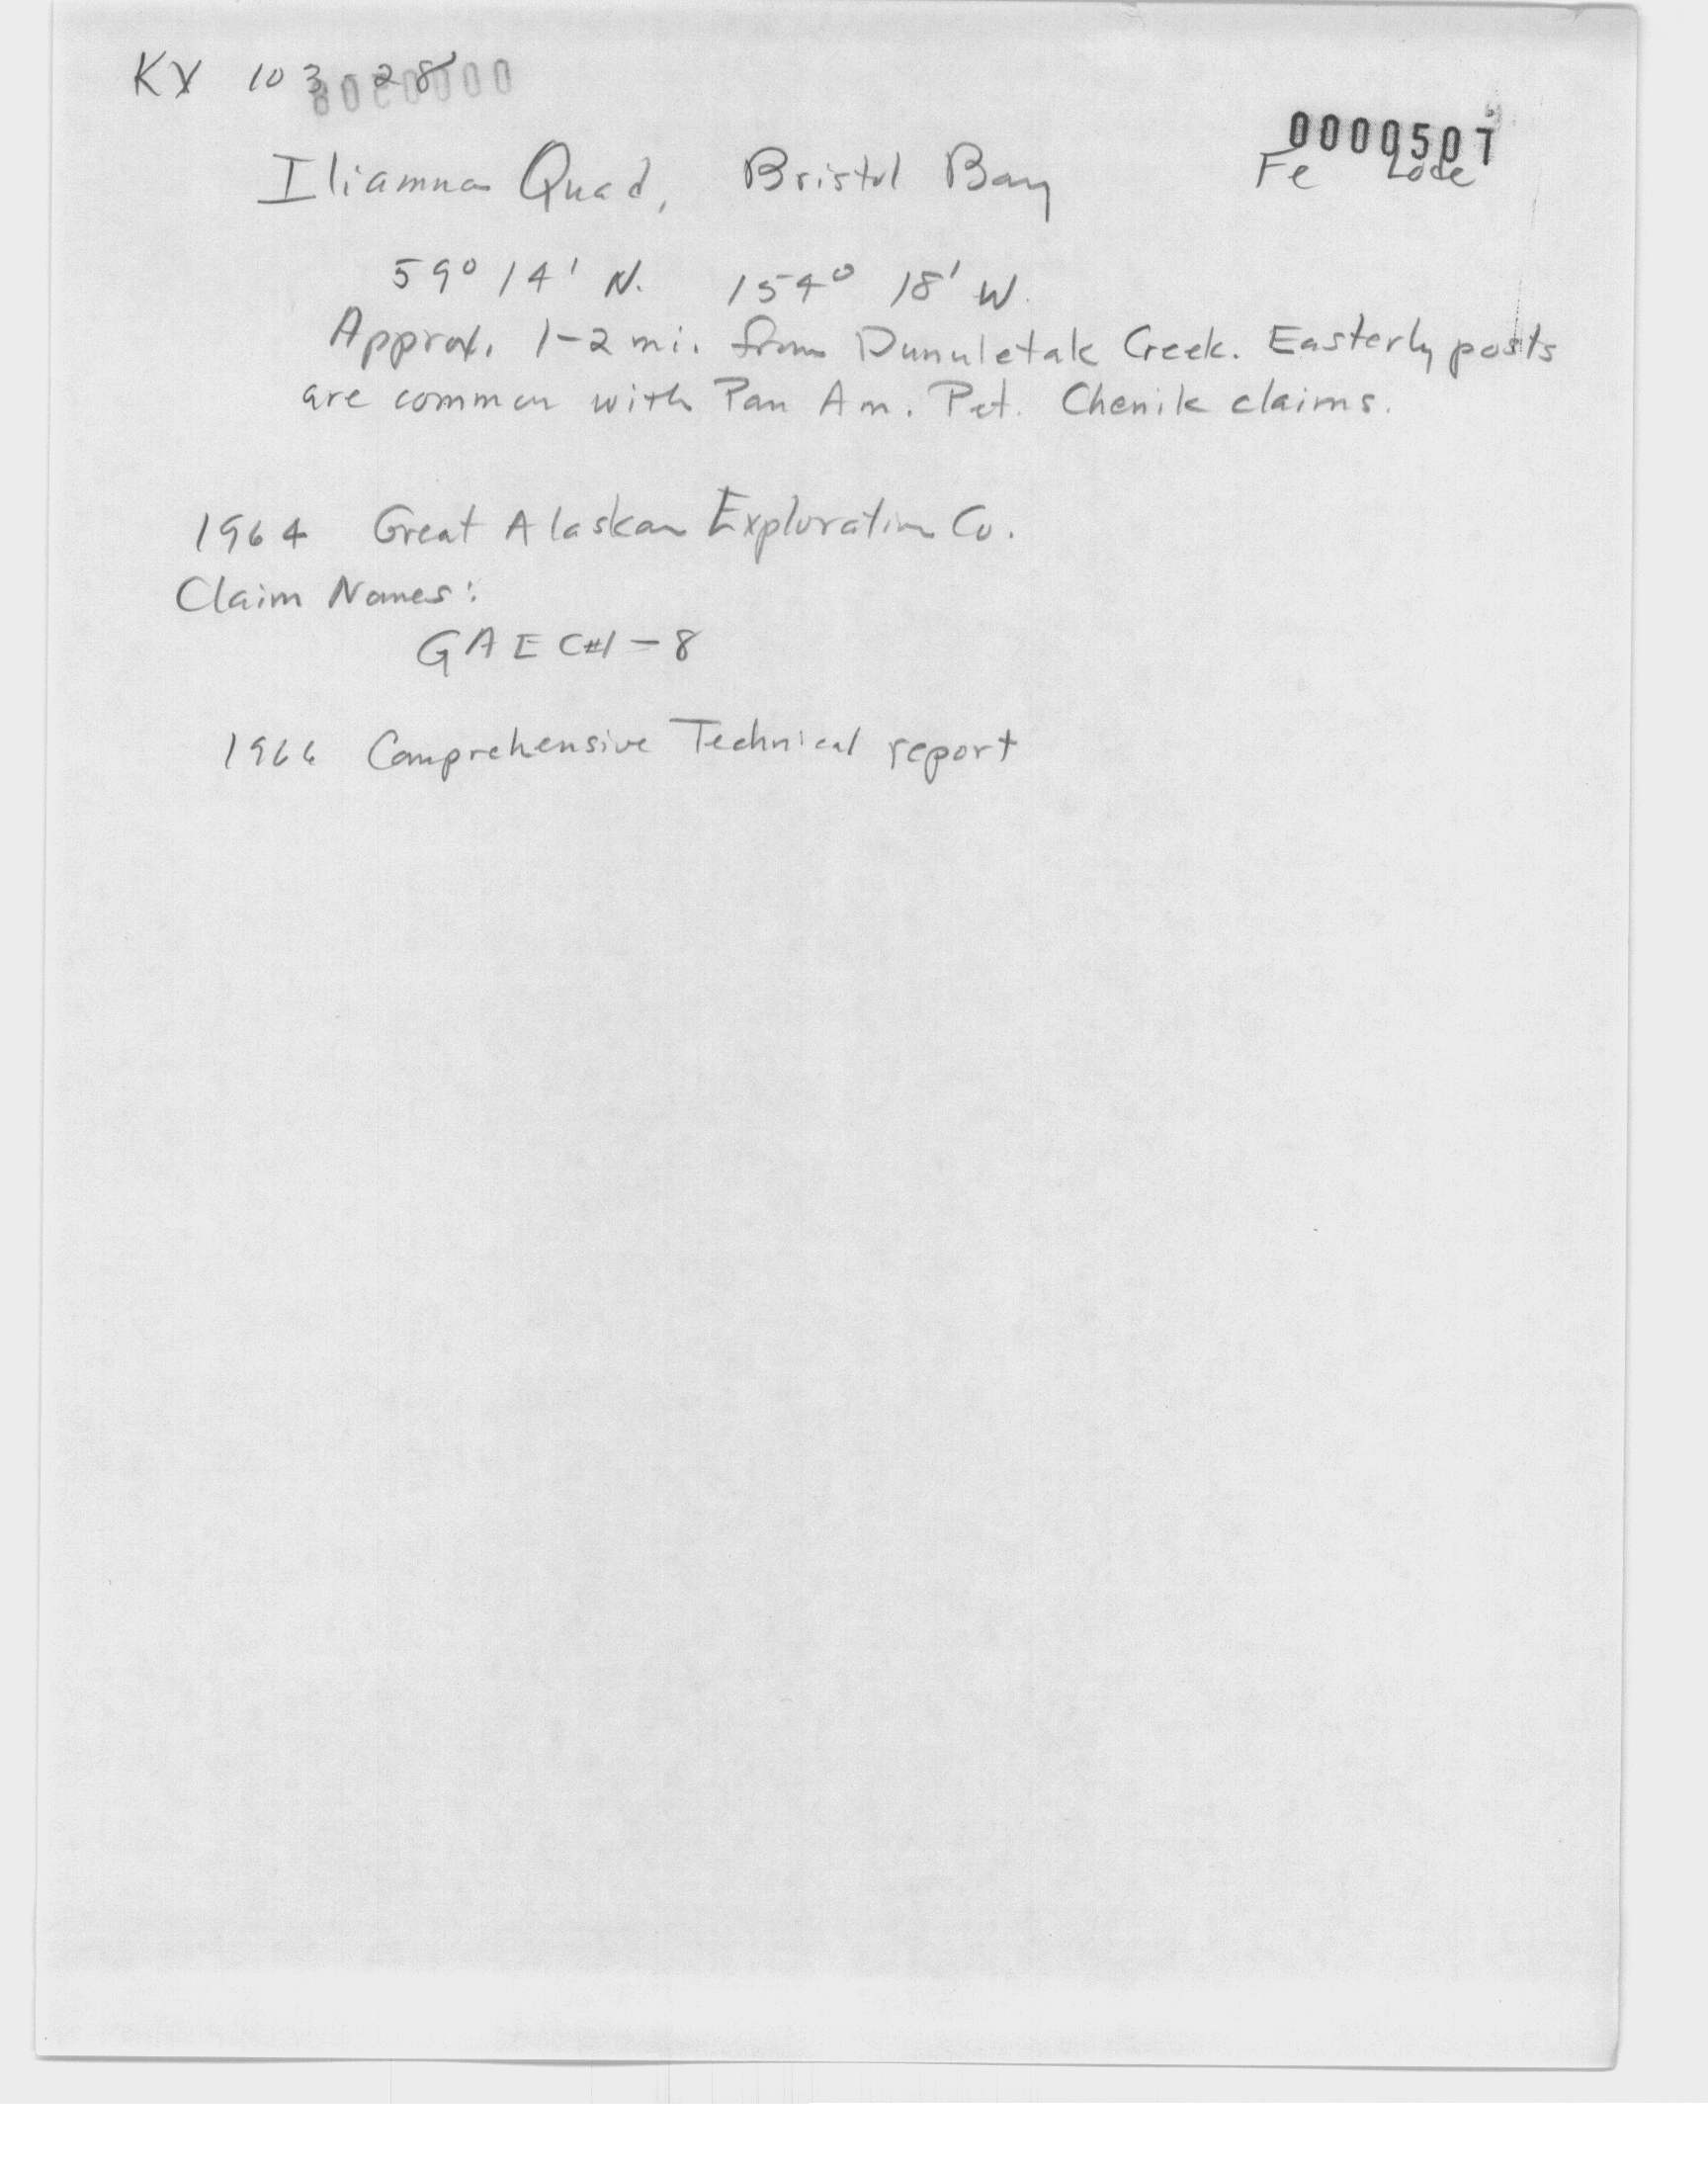 KX 103-28
0000507
Fe Lode
Iliamna Quad, Bristol Bay
59° 14' N. 154° 18' W.
Approx. 1-2 mi. from Dunuletak Creek. Easterly posts
are common with Pan Am. Pet. Chenik claims.
1964 Great Alaskan Exploration Co.
Claim Names:
GAEC #1-8
1966 Comprehensive Technical report